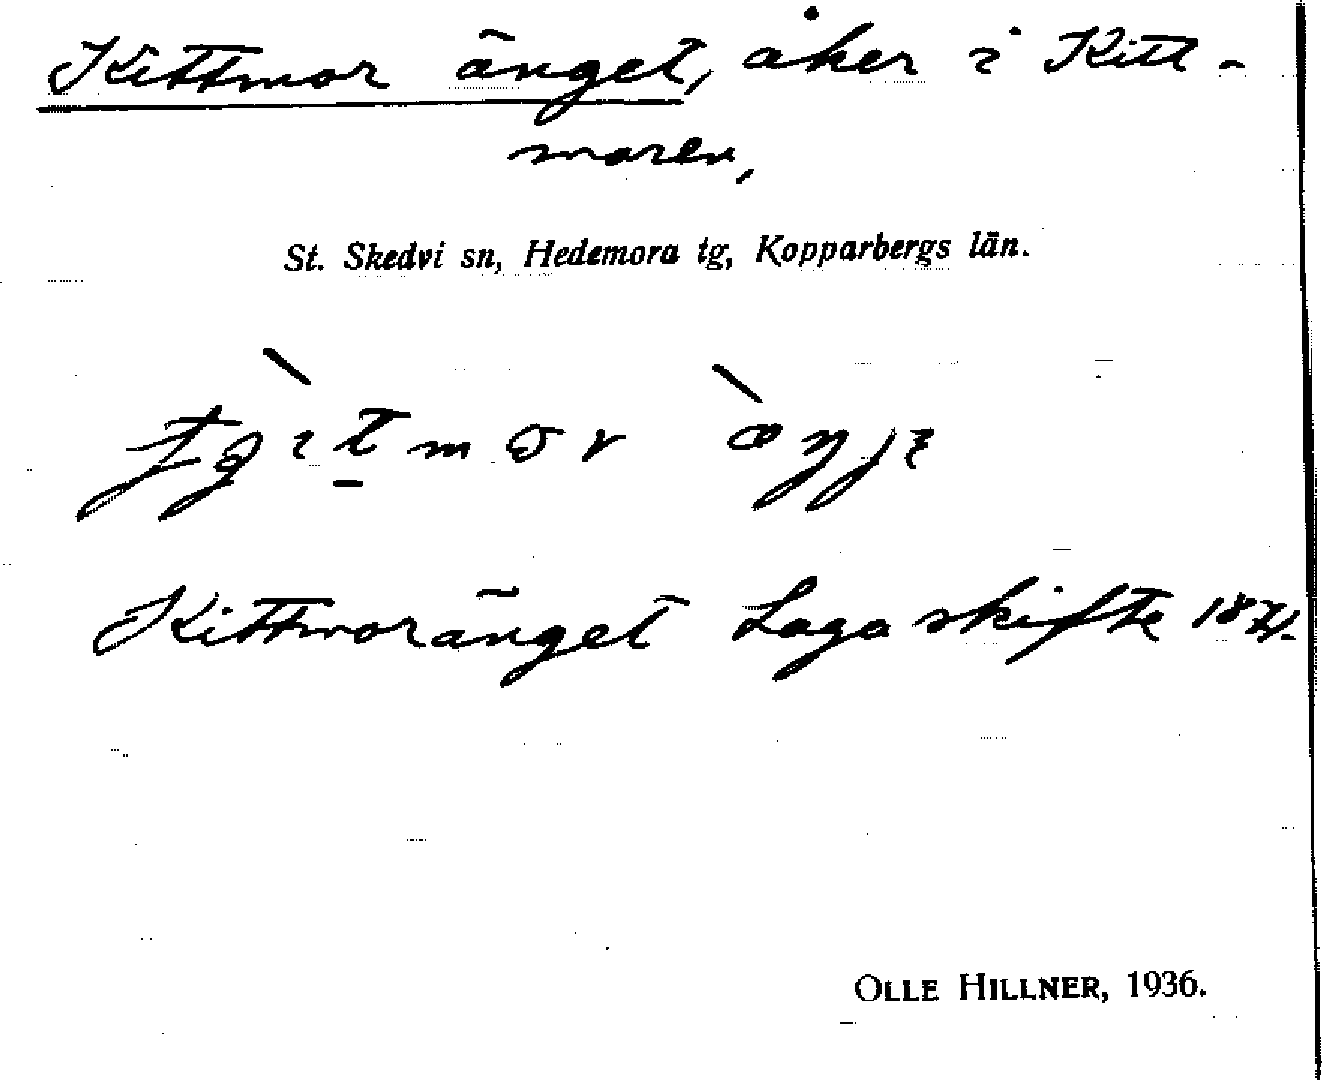 Kittmor änget, åker i Kitt-
moren,
St. Skedvi sn, Hedemora tg, Kopparbergs län.
Kittmoränget Laga skifte
OLLE HILLNER, 1936.